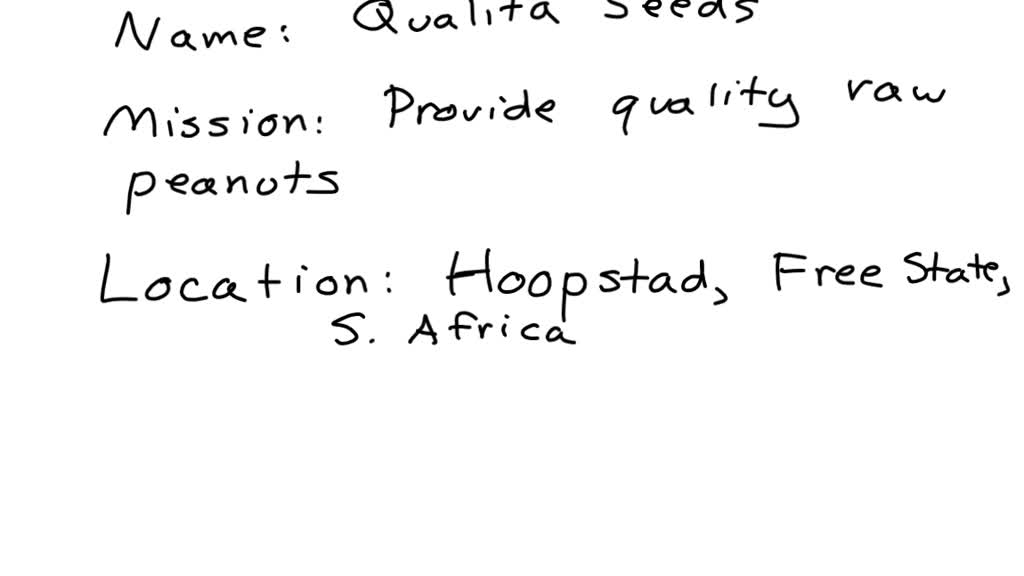 Name: Qualita Seeds
Mission: Provide quality raw
peanuts
Location: Hoopstad, Free State,
S. Africa